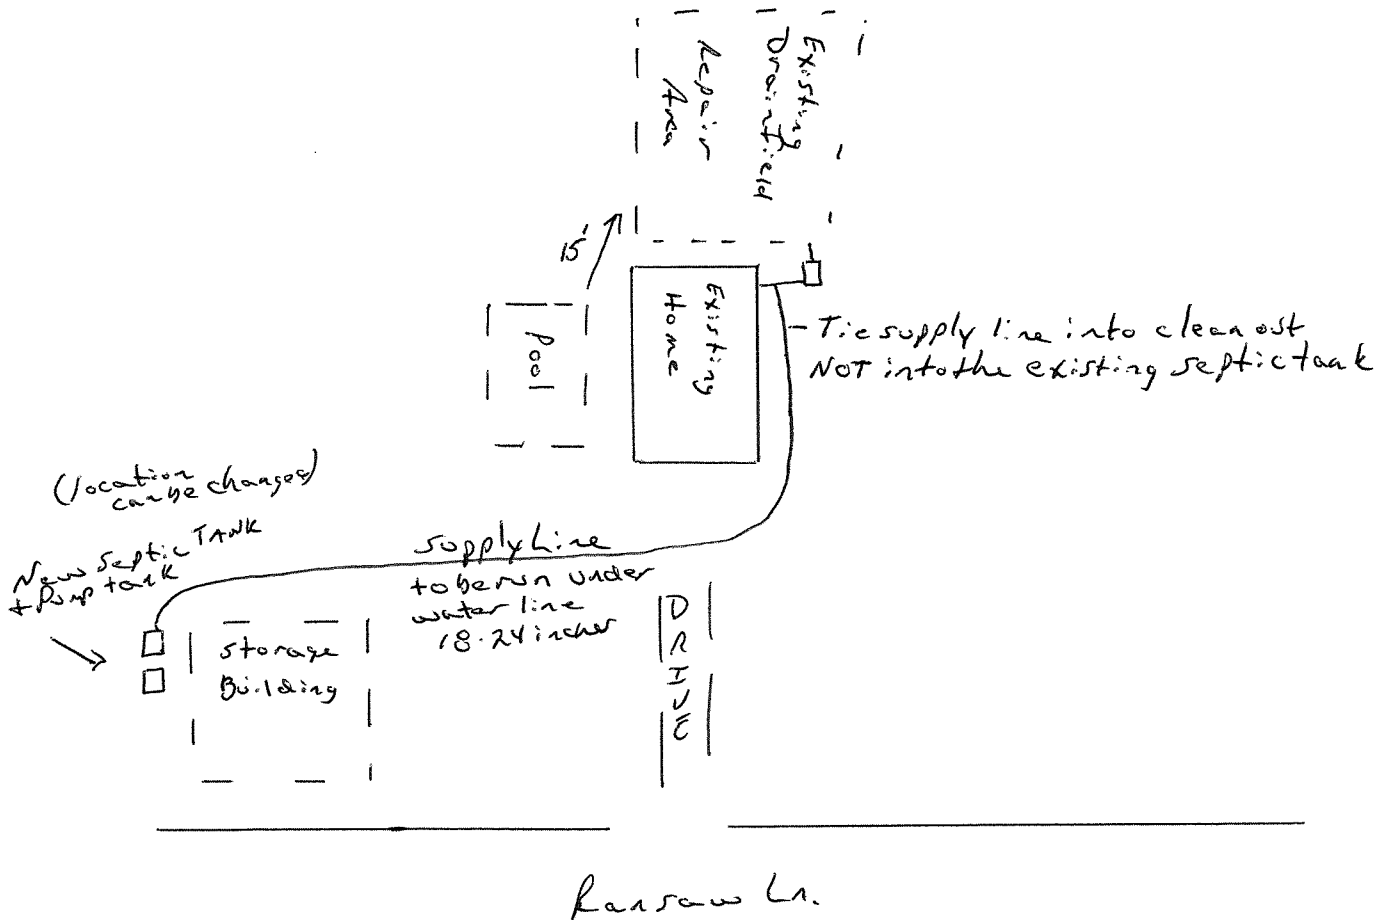 Existing
Drainfield
Repair
Area
15'
Existing
Home
Pool
- Tie supply line into clean out
NOT into the existing septic tank
(location
can be changed)
New Septic TANK
+ Pump tank
Supply Line
to be run under
water line
18-24 inches
Storage
Building
DRIVE
Ransaw Ln.